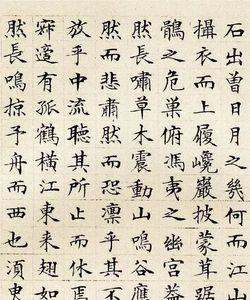 石出曾日月之幾何而江山
攝衣而上履巉巖披蒙茸踞
鶻之危巢俯馮夷之幽宮蓋
然長嘯草木震動山鳴谷應
然而悲肅然而恐凜乎其不
放乎中流聽其所止而休焉
寥適有孤鶴橫江東來翅如
然長鳴掠予舟而西也須臾